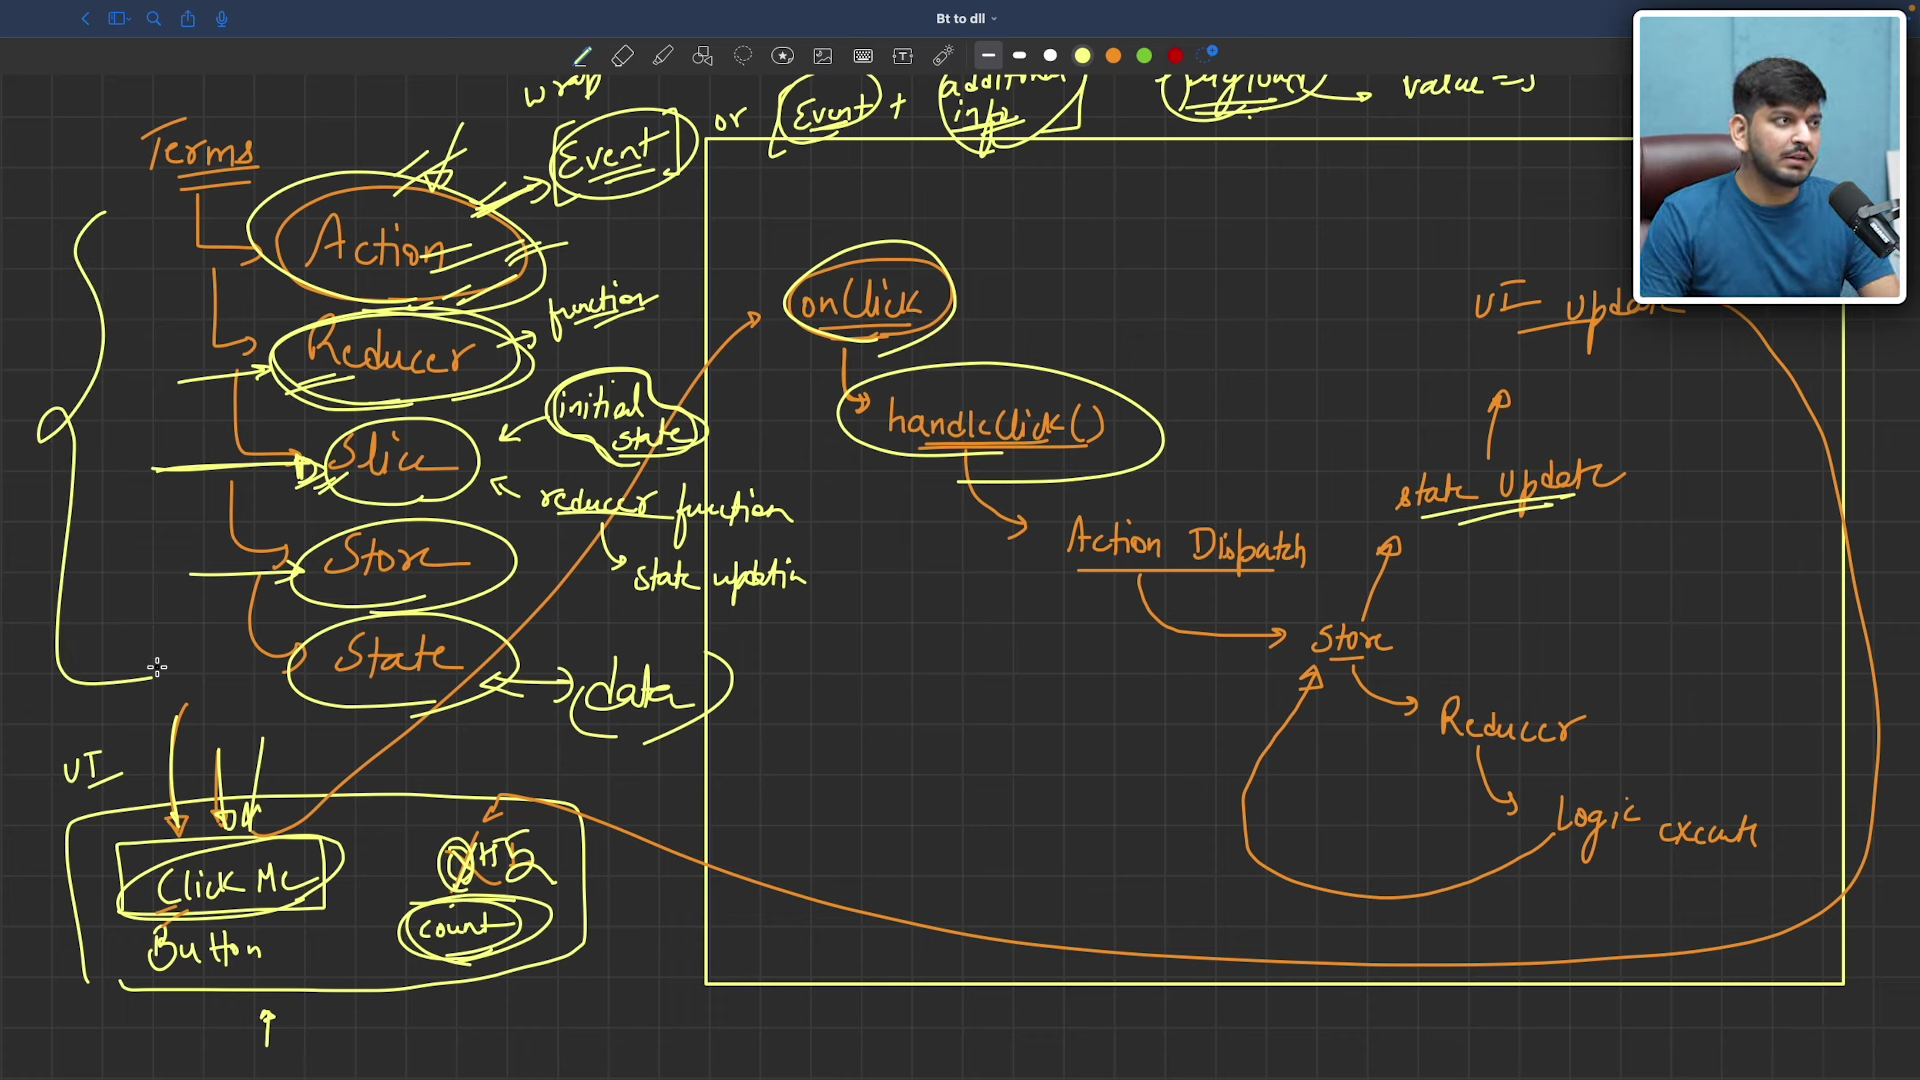 Bt to dll
wrap
Terms
Event
or
Event +
additional
info
payload
value =>
Action
function
Reducer
initial
state
Slice
reducer function
state updation
Store
State
data
UI
or
Click Me
Button
+1
count
onClick
handleClick()
Action Dispatch
Store
Reducer
Logic execute
state Update
UI update